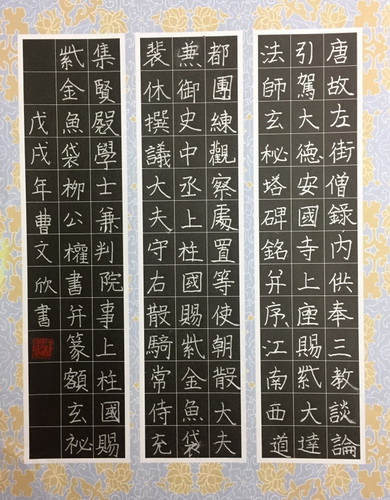 唐故左街僧錄內供奉三教談論
引駕大德安國寺上座賜紫大達
法師玄秘塔碑銘并序江南西道
都團練觀察處置等使朝散大夫
兼御史中丞上柱國賜紫金魚袋
裴休撰議大夫守右散騎常侍充
集賢殿學士兼判院事上柱國賜
紫金魚袋柳公權書并篆額玄祕
戊戌年曹文欣書